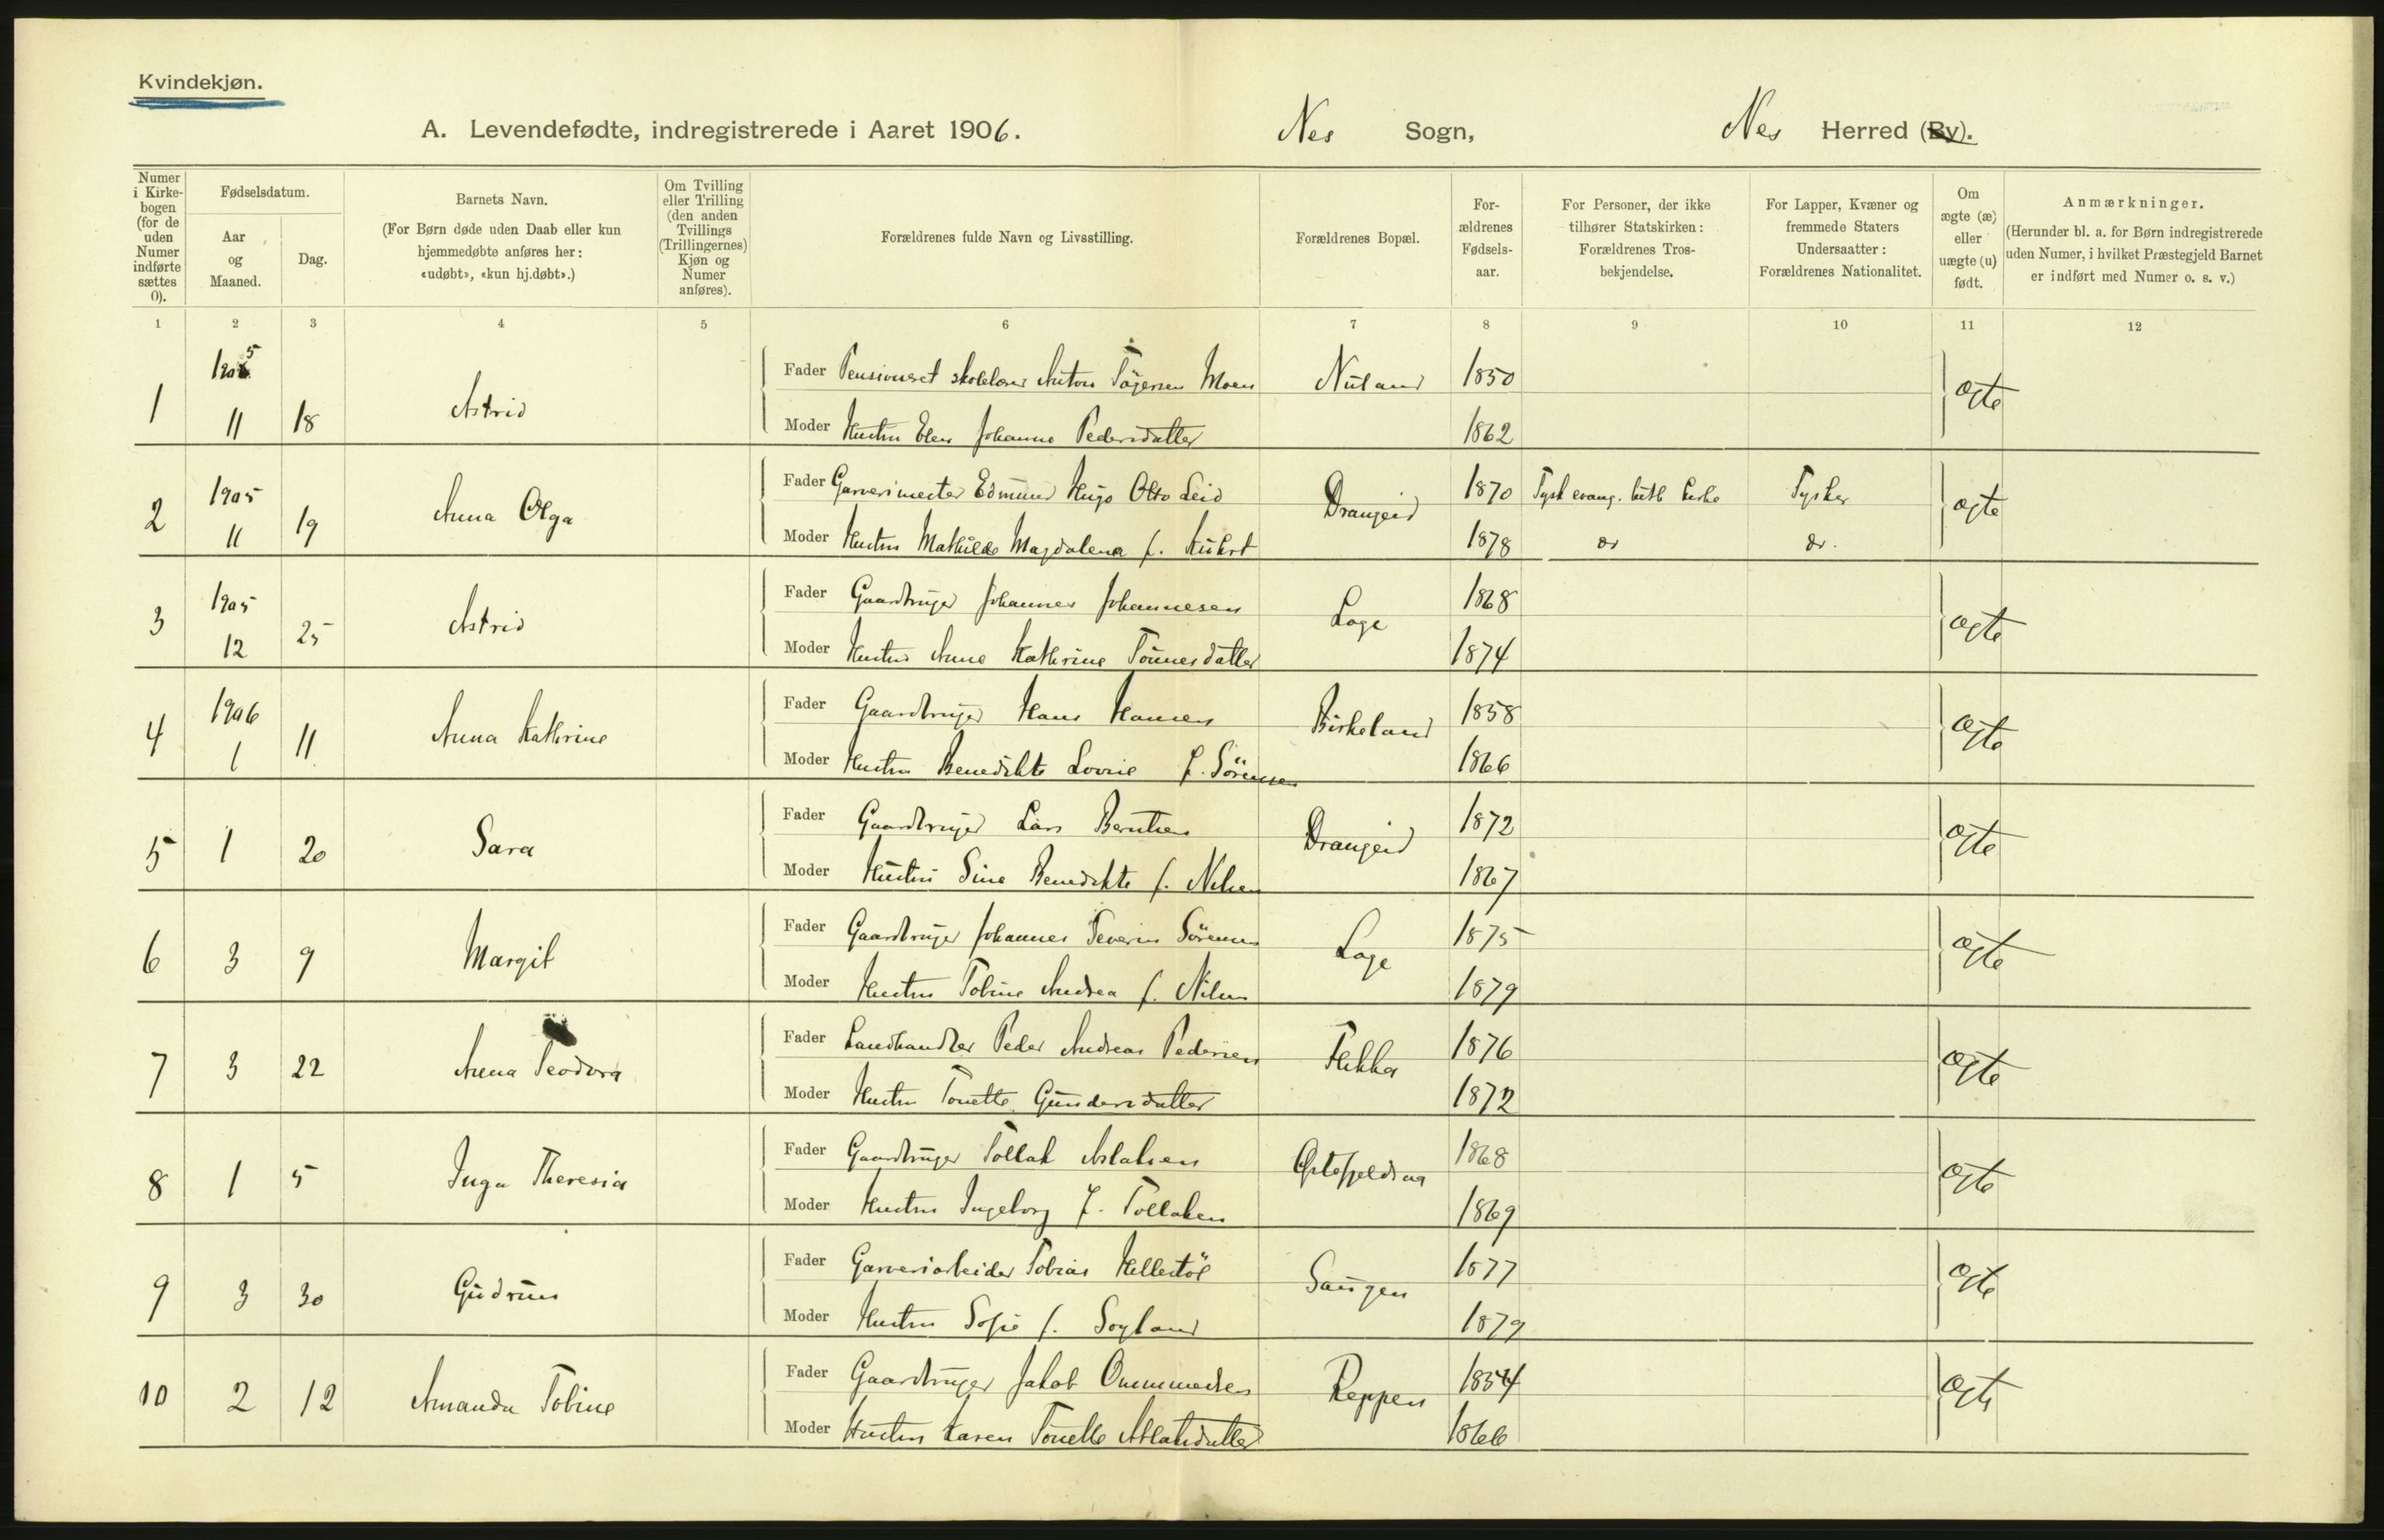 Kvindekjøn.
A. Levendefødte, indregistrerede i Aaret 1906. Nes Sogn, Nes Herred (By).
Numer i Kirkebogen (for de uden Numer indførte sættes 0).
Fødselsdatum.
Aar og Maaned.
Dag.
Barnets Navn.
(For Børn døde uden Daab eller kun hjemmedøbte anføres her: «udøbt», «kun hj.døbt».)
Om Tvilling eller Trilling (den anden Tvillings (Trillingernes) Kjøn og Numer anføres).
Forældrenes fulde Navn og Livsstilling.
Forældrenes Bopæl.
Forældrenes Fødselsaar.
For Personer, der ikke tilhører Statskirken: Forældrenes Trosbekjendelse.
For Lapper, Kvæner og fremmede Staters Undersaatter: Forældrenes Nationalitet.
Om ægte (æ) eller uægte (u) født.
Anmærkninger.
(Herunder bl. a. for Børn indregistrerede uden Numer, i hvilket Præstegjeld Barnet er indført med Numer o. s. v.)
1 2 3 4 5 6 7 8 9 10 11 12
1 1905 11 18 Astrid Fader Pensioneret skolelærer Anton Moen 1850 ægte
Moder Hustru Elen Johanne Pedersdatter 1862
2 1905 11 19 Anna Olga Fader Garverimester Edmund Hugo Otto Leid Drangeid 1870 Tysk evang. luth kirke Tysker ægte
Moder Hustru Mathilde Magdalena f. 1878 do do.
3 1905 12 25 Astrid Fader Gaardbruger Johannes Johannesen Loge 1868 ægte
Moder Hustru Anne Kathrine Tönnesdatter 1874
4 1906 1 11 Anna Kathrine Fader Gaardbruger Hans Hansen Birkeland 1858 ægte
Moder Hustru Benedikte Lovise f. Sörensen 1866
5 1 20 Sara Fader Gaardbruger Lars Berntsen Drangeid 1872 ægte
Moder Hustru Sine Benedikte f. Nilsen 1867
6 3 9 Margit Fader Gaardbruger Johannes Severin Sörensen Loge 1875 ægte
Moder Hustru Tobine Andrea f. Nilsen 1879
7 3 22 Anna Teodora Fader Landhandler Peder Andreas Pedersen Flikka 1876 ægte
Moder Hustru Tonette Gundersdatter 1872
8 1 5 Inga Theresia Fader Gaardbruger Tollak Aslaksen 1868 ægte
Moder Hustru Ingeborg f. Tollaksen 1869
9 3 30 Gudrun Fader Garveriarbeider Tobias Hellestöl Saugen 1877 ægte
Moder Hustru Sofie f. Sogland 1879
10 2 12 Amanda Tobine Fader Gaardbruger Jakob Ommundsen Reppen 1854 ægte
Moder Hustru Karen Tonette Atlaksdatter 1866